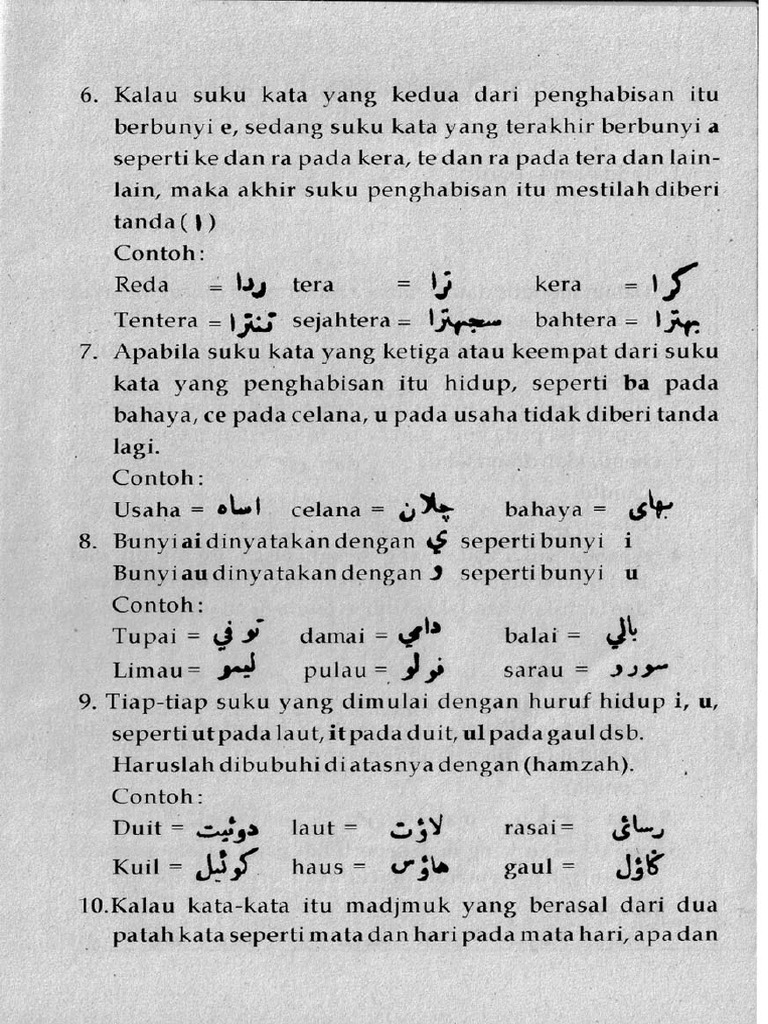 6. Kalau suku kata yang kedua dari penghabisan itu
berbunyi e, sedang suku kata yang terakhir berbunyi a
seperti ke dan ra pada kera, te dan ra pada tera dan lain-
lain, maka akhir suku penghabisan itu mestilah diberi
tanda ( ا )
Contoh :
Reda = ردا tera = ترا kera = كرا
Tentera = تنترا sejahtera = سجهترا bahtera = بهترا
7. Apabila suku kata yang ketiga atau keempat dari suku
kata yang penghabisan itu hidup, seperti ba pada
bahaya, ce pada celana, u pada usaha tidak diberi tanda
lagi.
Contoh :
Usaha = اساه celana = چلان bahaya = بهاى
8. Bunyi ai dinyatakan dengan ي seperti bunyi i
Bunyi au dinyatakan dengan و seperti bunyi u
Contoh :
Tupai = توفي damai = دامي balai = بالي
Limau = ليمو pulau = فولو sarau = سورو
9. Tiap-tiap suku yang dimulai dengan huruf hidup i, u,
seperti ut pada laut, it pada duit, ul pada gaul dsb.
Haruslah dibubuhi di atasnya dengan (hamzah).
Contoh :
Duit = دوئيت laut = لاؤت rasai = رسائى
Kuil = كوئيل haus = هاؤس gaul = گاؤل
10.Kalau kata-kata itu madjmuk yang berasal dari dua
patah kata seperti mata dan hari pada mata hari, apa dan